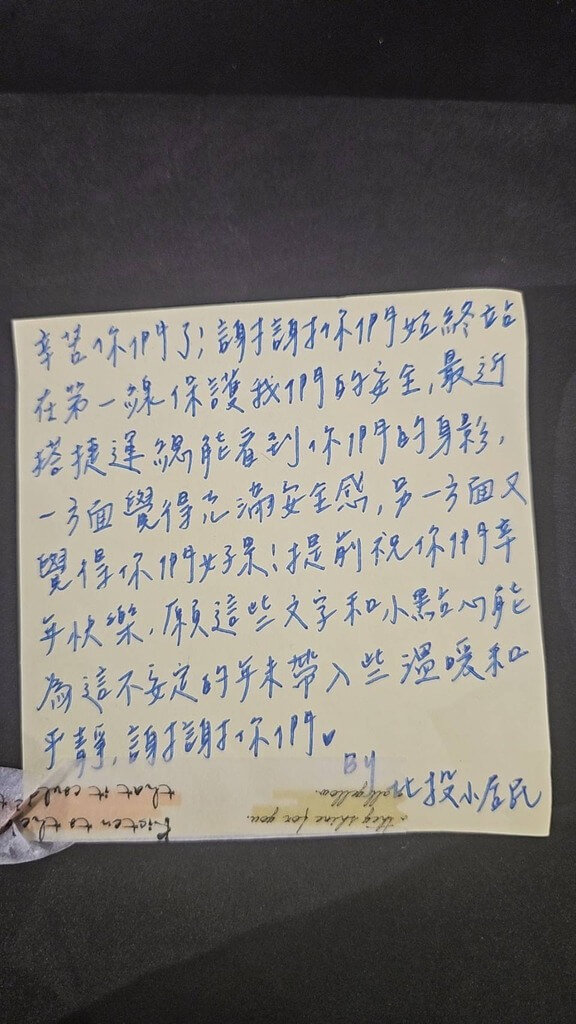 辛苦你們了!謝謝你們始終站
在第一線保護我們的安全,最近
搭捷運總能看到你們的身影,
一方面覺得充滿安全感,另一方面又
覺得你們好累!提前祝你們辛
年快樂,願這些文字和小點心能
為這不安定的年末帶入些溫暖和
平靜,謝謝你們♥
By 北投小居民
that it could
listen to the
they shine for you